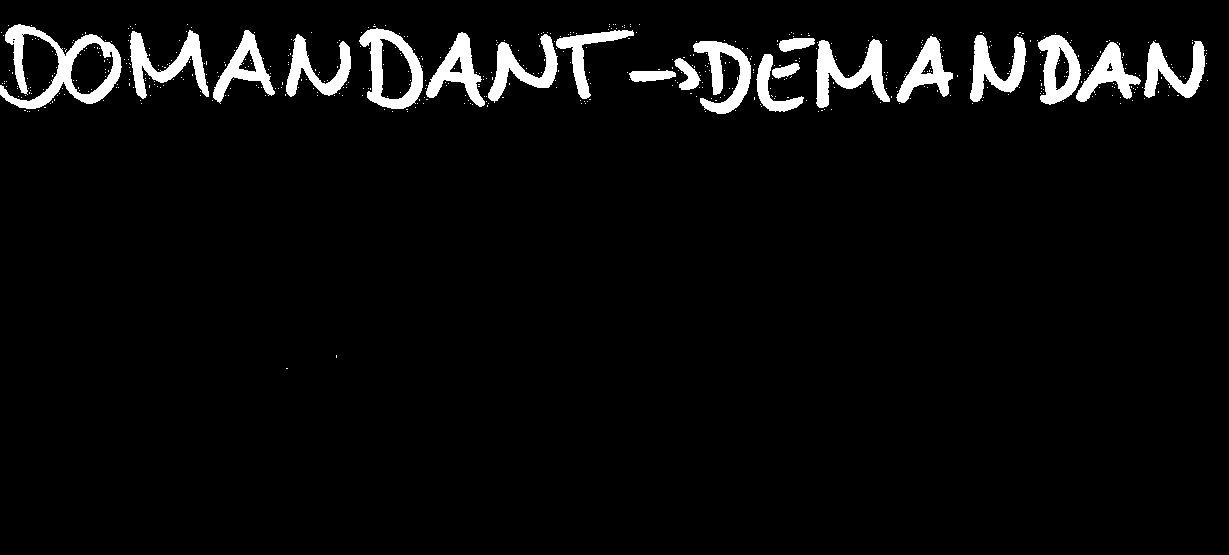 DOMANDANT → DEMANDAN